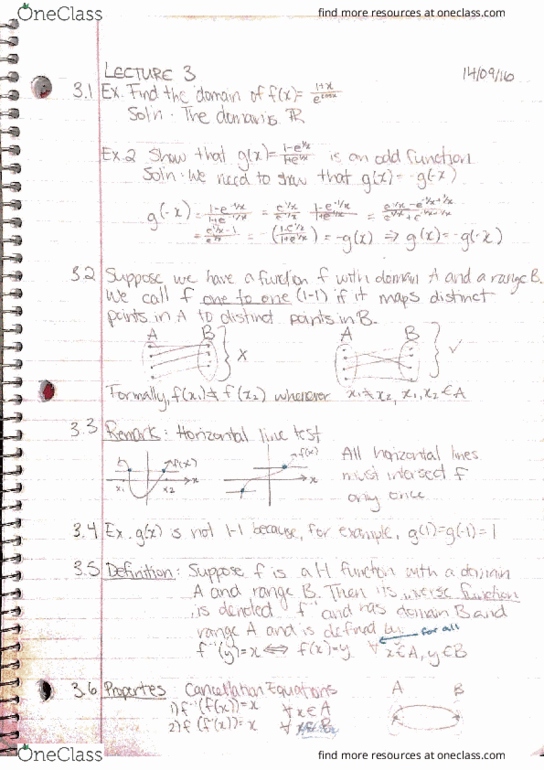 OneClass
find more resources at oneclass.com
LECTURE 3 14/09/16
3.1 Ex. Find the domain of f(x)=
Sol'n: The domain is ℝ
Ex.2 Show that g(x)= 1-e^1/x / 1+e^1/x is an odd function
Sol'n: We need to show that g(x)=-g(-x)
g(-x)= 1-e^-1/x / 1+e^-1/x = e^1/x / e^1/x · 1-e^-1/x / 1+e^-1/x =
= -(1-e^1/x / 1+e^1/x) = -g(x) ⇒ g(x)=-g(-x)
3.2 Suppose we have a function f with domain A and a range B.
We call f one to one (1-1) if it maps distinct
points in A to distinct points in B.
A B } X A B } ✓
Formally, f(x₁)≠f(x₂) whenever x₁≠x₂, x₁,x₂∈A
3.3 Remark: Horizontal line test
f(x) x x₁ x₂ f(x) x
All horizontal lines
must intersect f
only once
3.4 Ex. g(x) is not 1-1 because, for example, g(1)=g(-1)=1
3.5 Definition: Suppose f is a 1-1 function with a domain
A and range B. Then its inverse function
is denoted f⁻¹ and has domain B and
range A and is defined by
for all
f⁻¹(y)=x ⇔ f(x)=y ∀ x∈A, y∈B
3.6 Properties: Cancellation Equations A B
1) f⁻¹(f(x))=x ∀x∈A
2) f(f⁻¹(x))=x ∀ B
OneClass
find more resources at oneclass.com